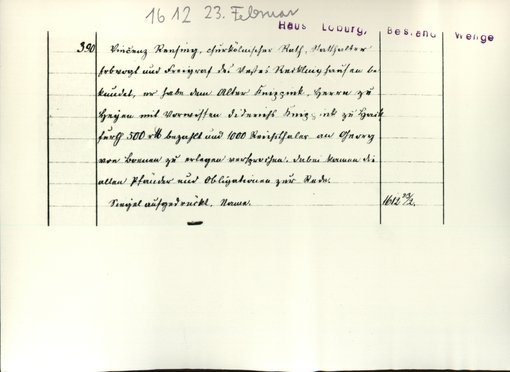 1612 23. Februar
Haus Loburg, Bestand Wenge
390 Vincenz Rensing, churkölnischer Rath, Statthalter
Erbvogt und Freigraf des Vestes Recklinghausen be-
kundet, er habe dem Alter Knipping, Herrn zu
Heyen mit Vorwissen Diderichs Knipping zu Hart
500 rth bezahlt und 1000 Reichsthaler an Georg
von Bremen zu erlegen versprochen. Dabei kamen die
alten Pfänder und Obligationen zur Rede.
Siegel aufgedruckt. Name. 1612 23/2.